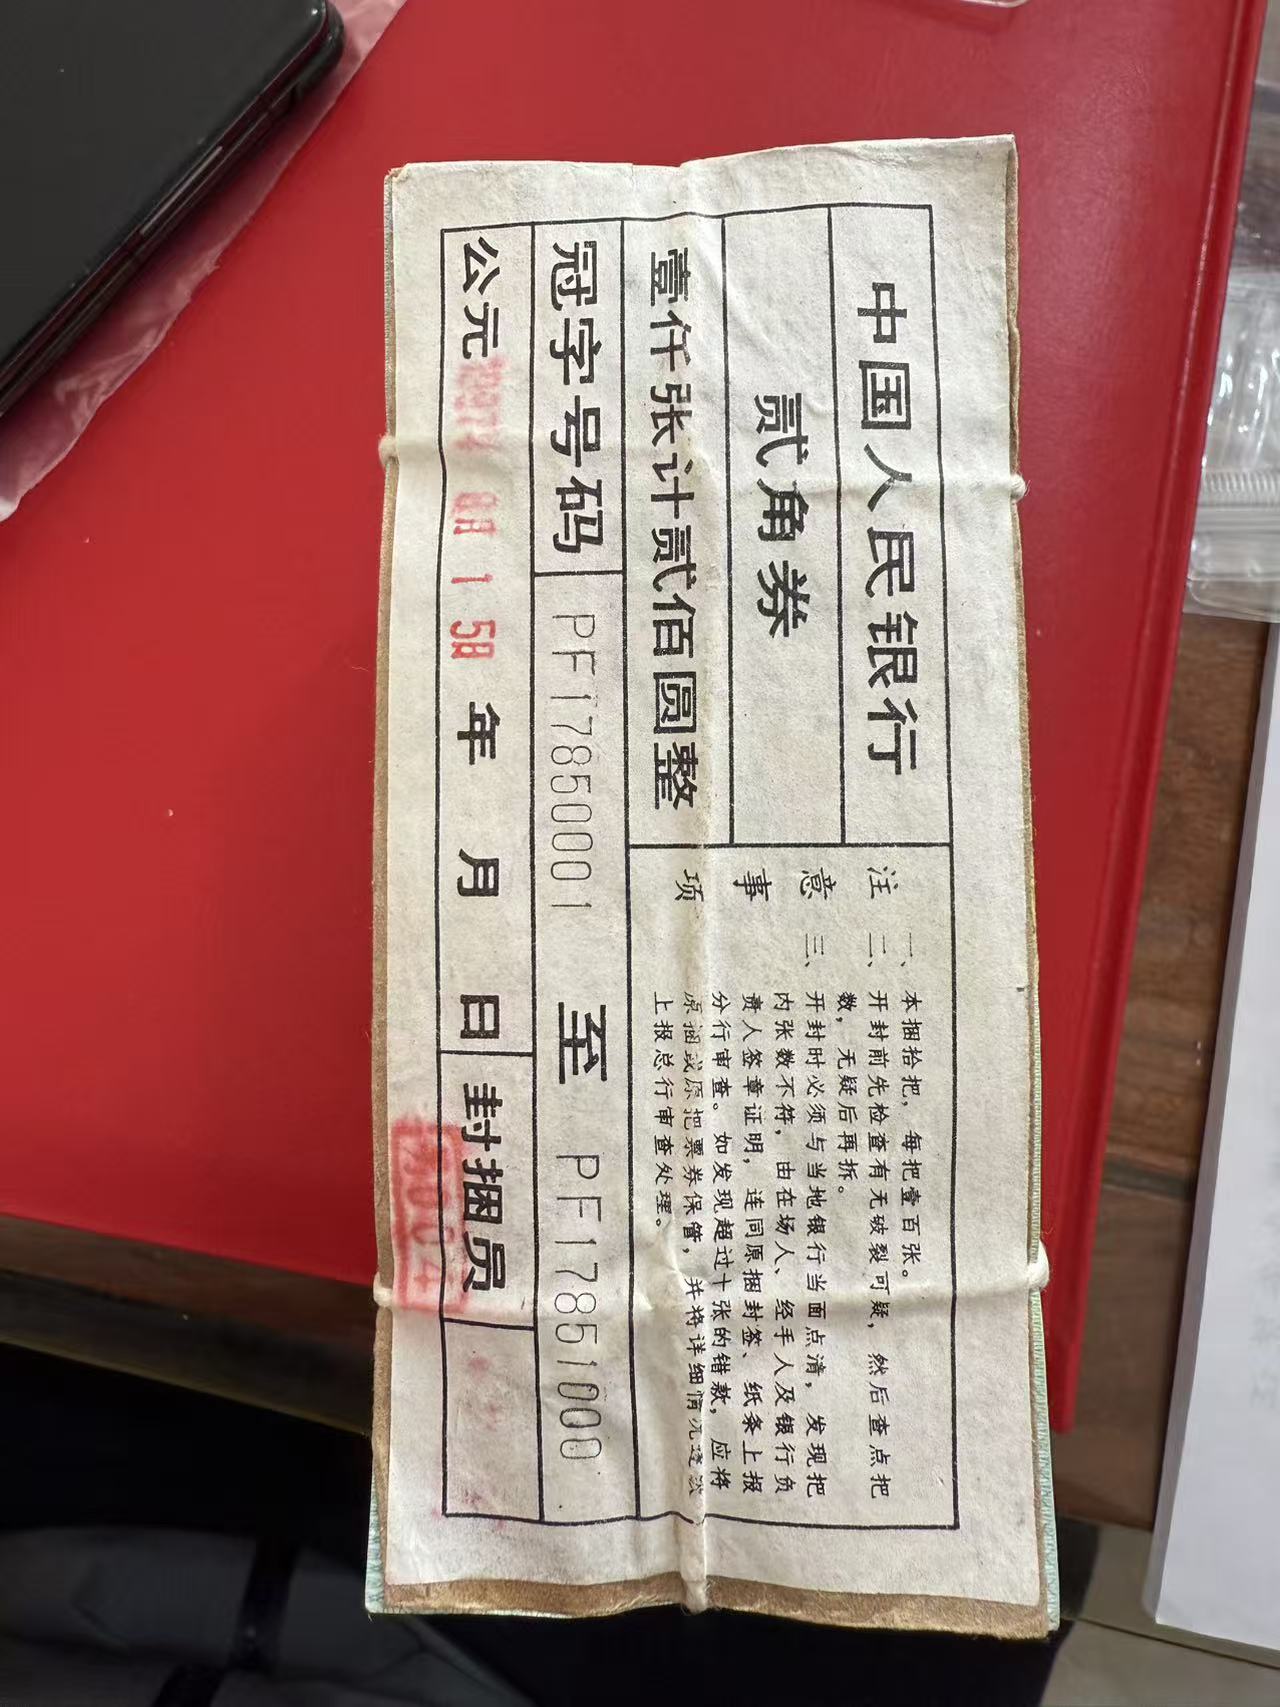 中国人民银行
贰角券
壹仟张计贰佰圆整
注意事项
一、本捆拾把，每把壹百张。
二、开封前先检查有无破裂可疑，然后查点把
数，无疑后再拆。
三、开封时必须与当地银行当面点清，发现把
内张数不符，由在场人、经手人及银行负
责人签章证明，连同原捆封签、纸条上报
分行审查。如发现超过十张的错款，应将
原捆或原把票券保管，并将详细情况逐级
上报总行审查处理。
冠字号码 PF1785001 至 PF1786000
公元 年 月 日 封捆员